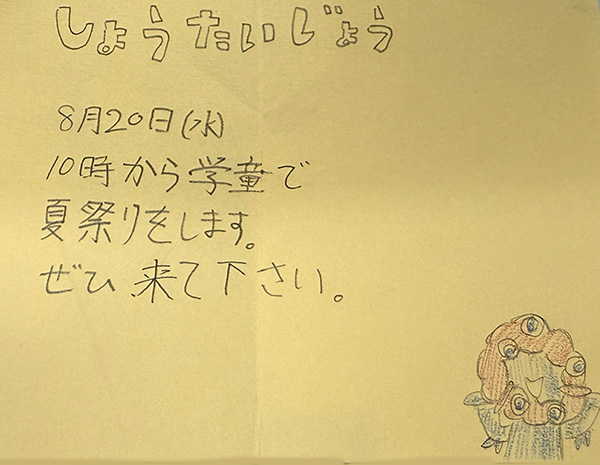 しょうたいじょう
8月20日(水)
10時から学童で
夏祭りをします。
ぜひ来て下さい。